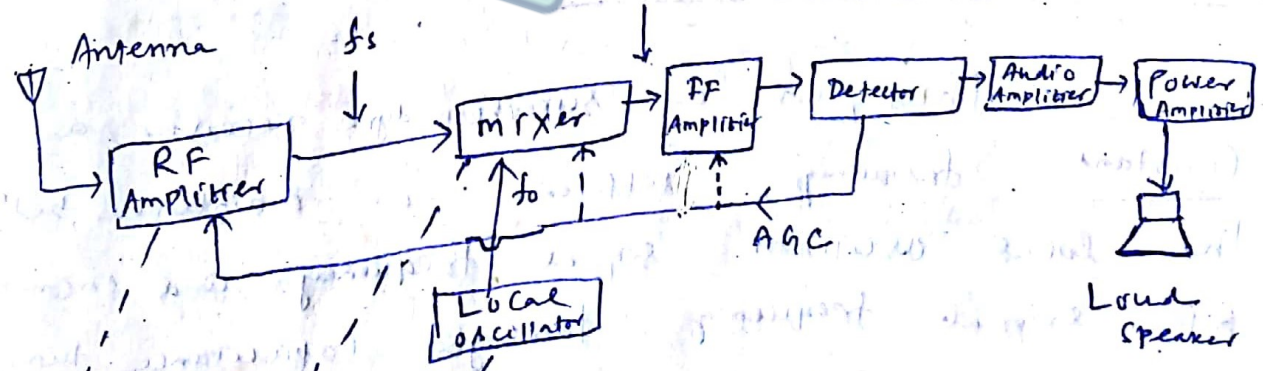 Antenna
fs
RF
Amplifier
mixer
fo
Local
oscillator
IF
Amplifier
AGC
Detector
Audio
Amplifier
Power
Amplifier
Loud
Speaker